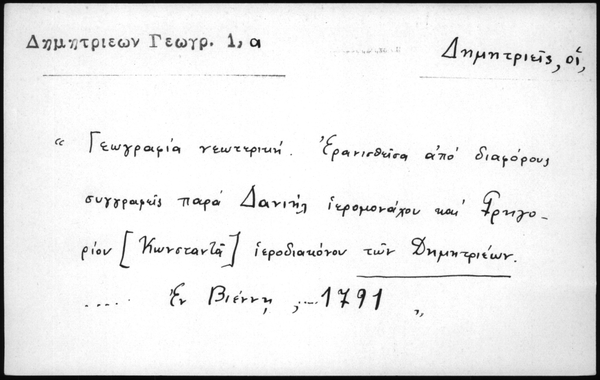 Δημητριεων Γεωγρ. 1, α
Δημητριεῖς, οἱ,
“ Γεωγραφία νεωτερική. Ἐρανισθεῖσα ἀπό διαφόρους
συγγραφεῖς παρά Δανιήλ ἱερομονάχου καί Γρηγο-
ρίου [Κωνσταντᾶ] ἱεροδιακόνου τῶν Δημητριέων.
..... Ἐν Βιέννῃ, ....1791 „